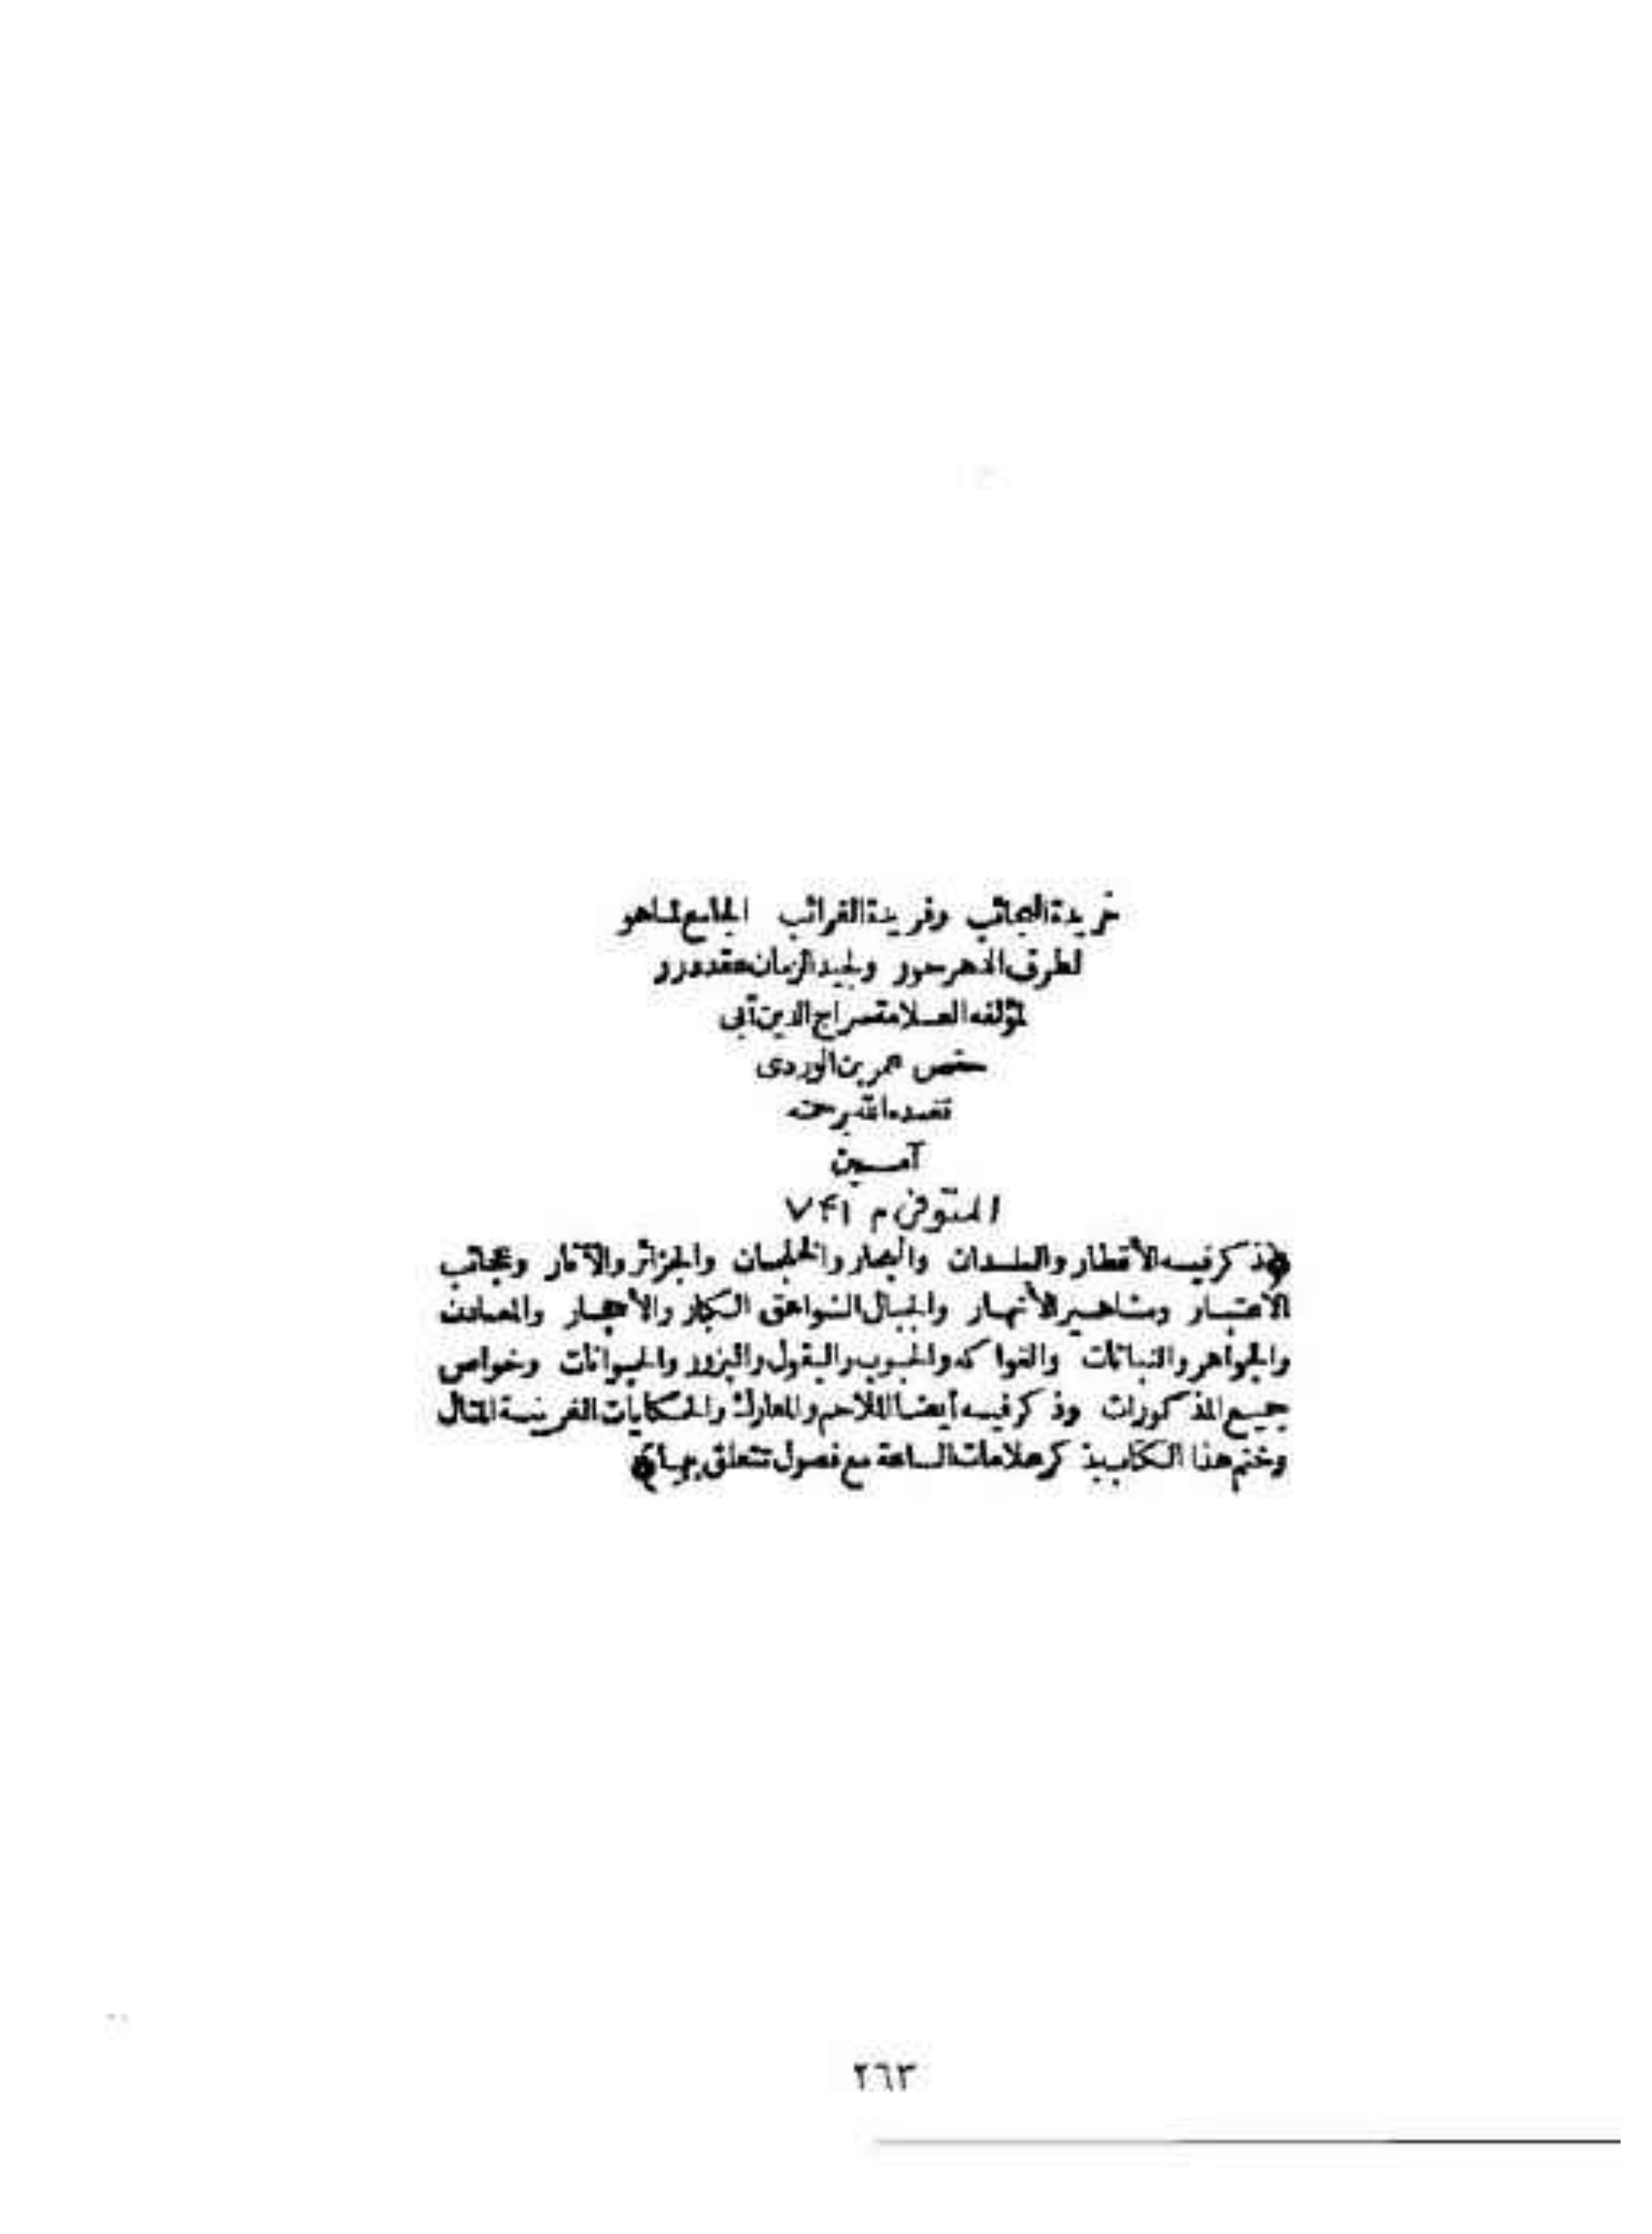 خريدة العجائب وفريدة الغرائب الجامع لما هو
لطرف الدهر حور ولجيد الزمان عقد درر
لمؤلفه العلامة سراج الدين أبى
حفص عمر بن الوردى
تغمده الله برحمته
آمين
المتوفى م ٧٤١
﴿ذكر فيه الأقطار والبلدان والبحار والخلجان والجزائر والآثار وعجائب
الاعتبار ومشاهير الأنهار والجبال الشواهق الكبار والأحجار والمعادن
والجواهر والنباتات والفواكه والحبوب والبقول والبزور والحيوانات وخواص
جميع المذكورات وذكر فيه أيضا الملاحم والمعارك والحكايات الغريبة المثال
وختم هذا الكتاب بذكر علامات الساعة مع فصول تتعلق بها﴾
٢٦٣